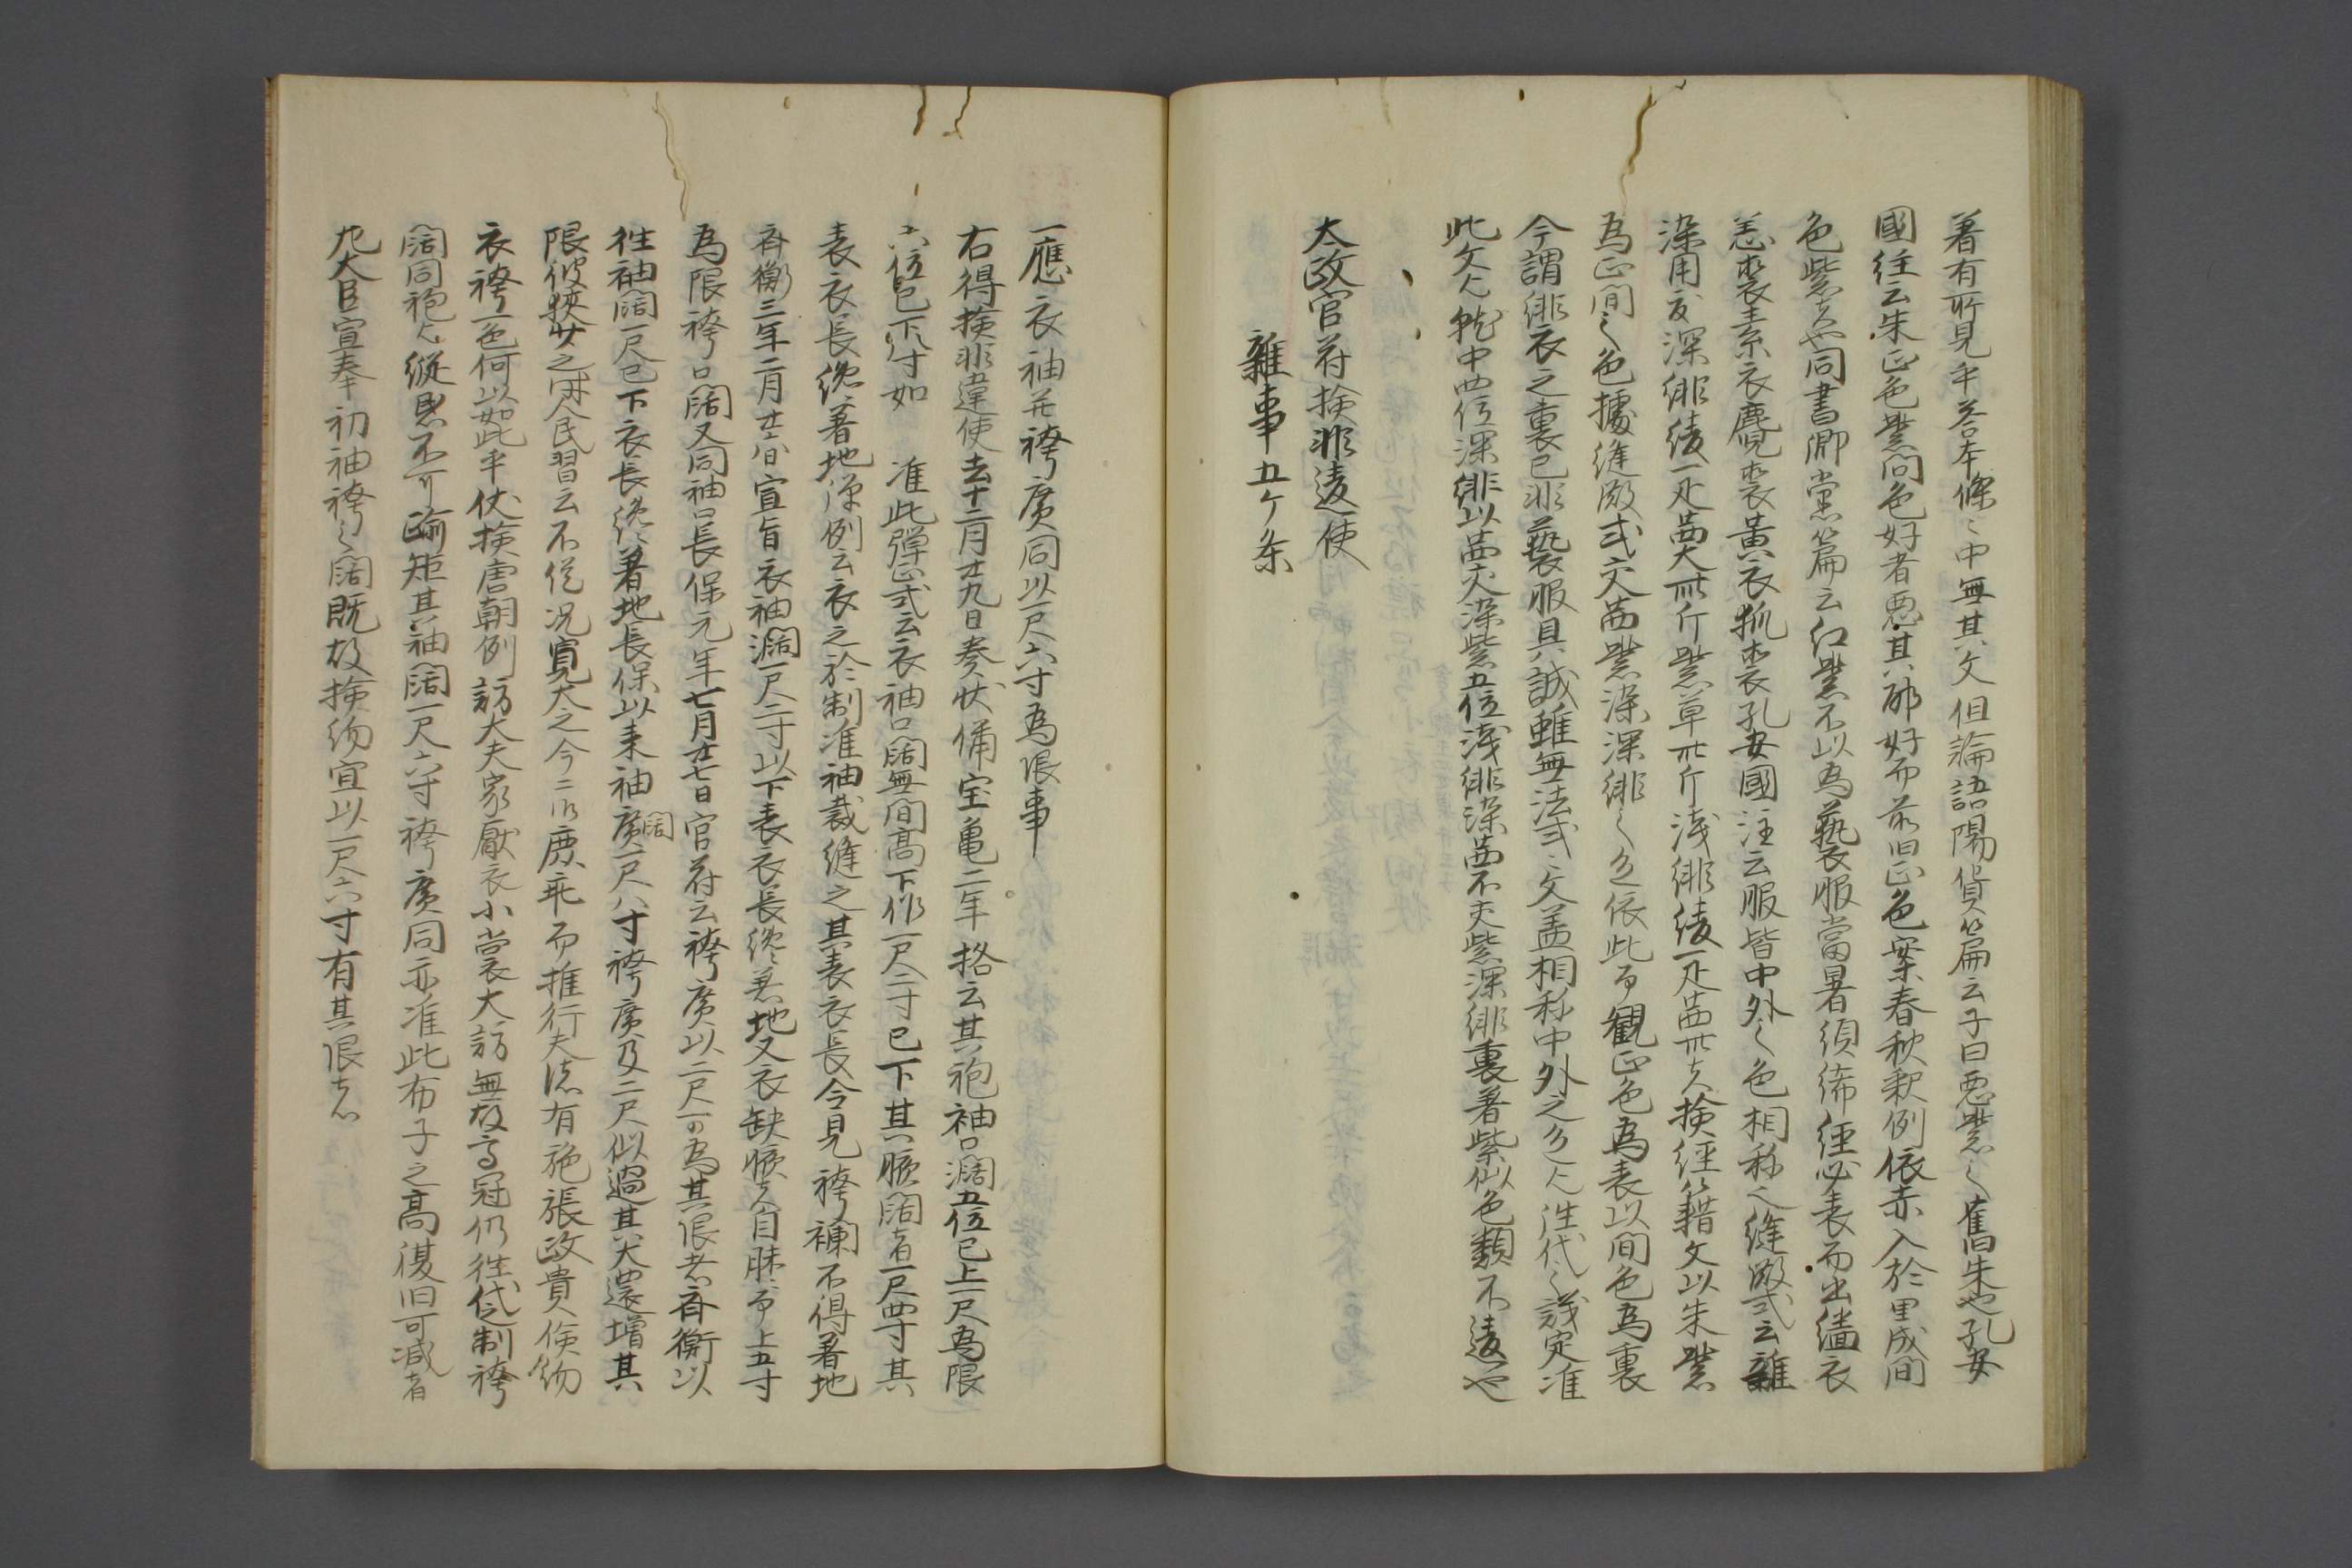 著有所見乎答本條〻中無其文但論語陽貨篇云子曰悪紫之奪朱也孔安
國注云朱正色紫間色好者悪其邪好而乱旧正色案春秋釈例依赤入於黒成間
色紫者也同書郷黨篇云紅紫不以為褻服當暑須絺絰必表而出緇衣
羔裘素衣麑裘黄衣狐裘孔安國注云服皆中外之色相称也縫殿式云雜
染用度深緋綾一疋茜大卌斤紫草卅斤浅緋綾一疋茜卅者検経籍文以朱紫
為正間之色據縫殿式交茜紫染深緋之色依此而観正色為表以間色為裏
今謂緋衣之裏已非褻服具誠雖無法式之文蓋相称中外之色也往代之議定准
此文也就中四位深緋以茜交染紫五位浅緋染茜不交紫深緋裏著紫似色類不違也
太政官符検非違使
雜事五ケ条
一應衣袖并袴廣同以一尺六寸為限事
右得検非違使去十二月廿九日奏状偁宝亀二年格云其袍袖口濶五位已上一尺為限
六位已下八寸如 准此弾正式云衣袖口闊無問高下作一尺二寸已下其腋闊者一尺四寸其
表衣長纔著地漂例云衣之於制准袖裁縫之其表衣長今見袴襴不得著地
斉衡三年二月廿六日宣旨衣袖濶一尺二寸以下表衣長纔着地又衣缺腋者自膝而上五寸
為限袴口闊又同袖口長保元年七月廿七日官符云袴廣以二尺可為其限者斉衡以
往袖闊一尺已下衣長纔著地長保以来袖廣闊一尺八寸袴廣及二尺似過其大還増其
限彼狭少之時人民習云不從况寛大之今二以鹿乖而推行夫流有施張政貴倹約
衣袴一色何以如此乎伏検唐朝例訪大夫家厭衣小裳大訪無故高冠仍往代制袴
闊同袍也縦思不可踰矩其袖闊一尺六寸袴廣同亦准此布子之高復旧可減者
左大臣宣奉初袖袴之闊既故検約宜以一尺六寸有其限者